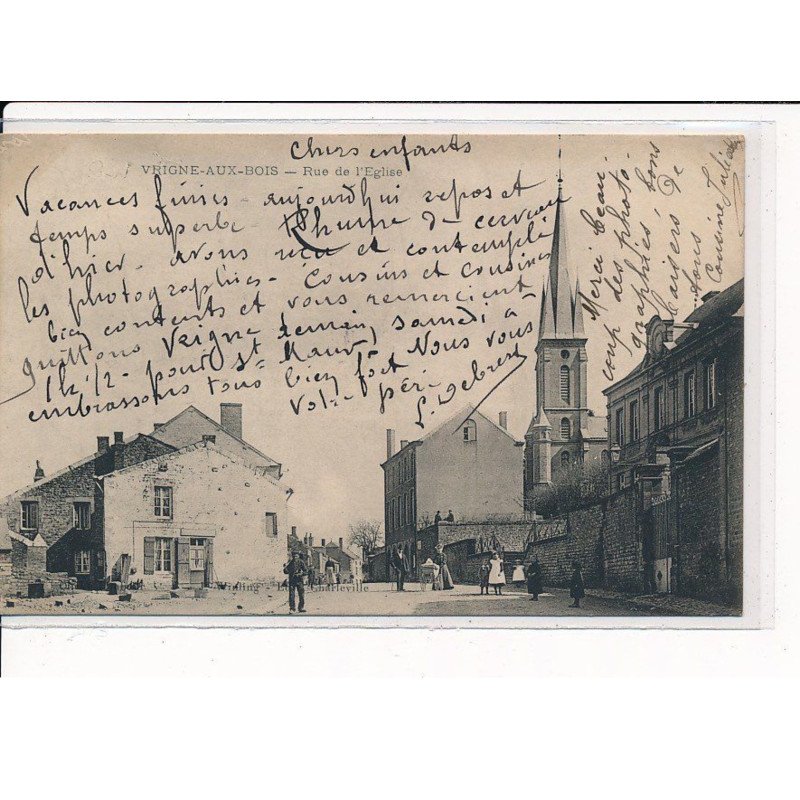 Chers enfants
VRIGNE-AUX-BOIS — Rue de l'Eglise
Vacances finies - aujourd'hui repos et
temps superbe - Rhume de cerveau
d'hier - avons reçu et contemplé
les photographies - Cousins et cousines
bien contents et vous remercient
quittons Vrigne demain, samedi à
1h 1/2 - pour St Maur,
embrassons tous bien fort Nous vous
Votre père
L. Debrest
Merci beau
coup des photo
graphies, bons
baisers de
tous
Cousine Juliette
Charleville